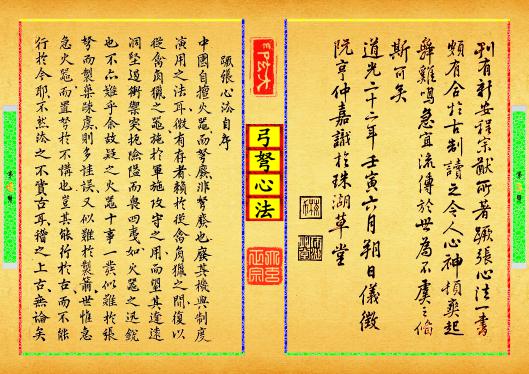 刊有新安程宗猷所著蹶張心法一書
頗有合於古制讀之令人心神頓爽起
舞雞鳴急宜流傳於世為不虞之備
斯可矣
道光二十二年壬寅六月朔日儀徵
阮亨仲嘉識於珠湖草堂
弓弩心法
蹶張心法自序
中國自擅火器而弩廢非弩廢也廢其機與制度
演用之法耳僅有存者賴於從禽角獵之間復以
從禽角獵之器施於軍旅攻守之用而望其達遠
洞堅過衝禦突扼險隘而畏四夷如火器之迅銳
也不亦難乎余故疑之火器十事一裝似難於張
弩而製藥疎虞則多誤又似難於製箭世惟急
急火器而置弩於不講也豈其能行於古而不能
行於今耶不然治之不賞古耳稽之上古無論矣